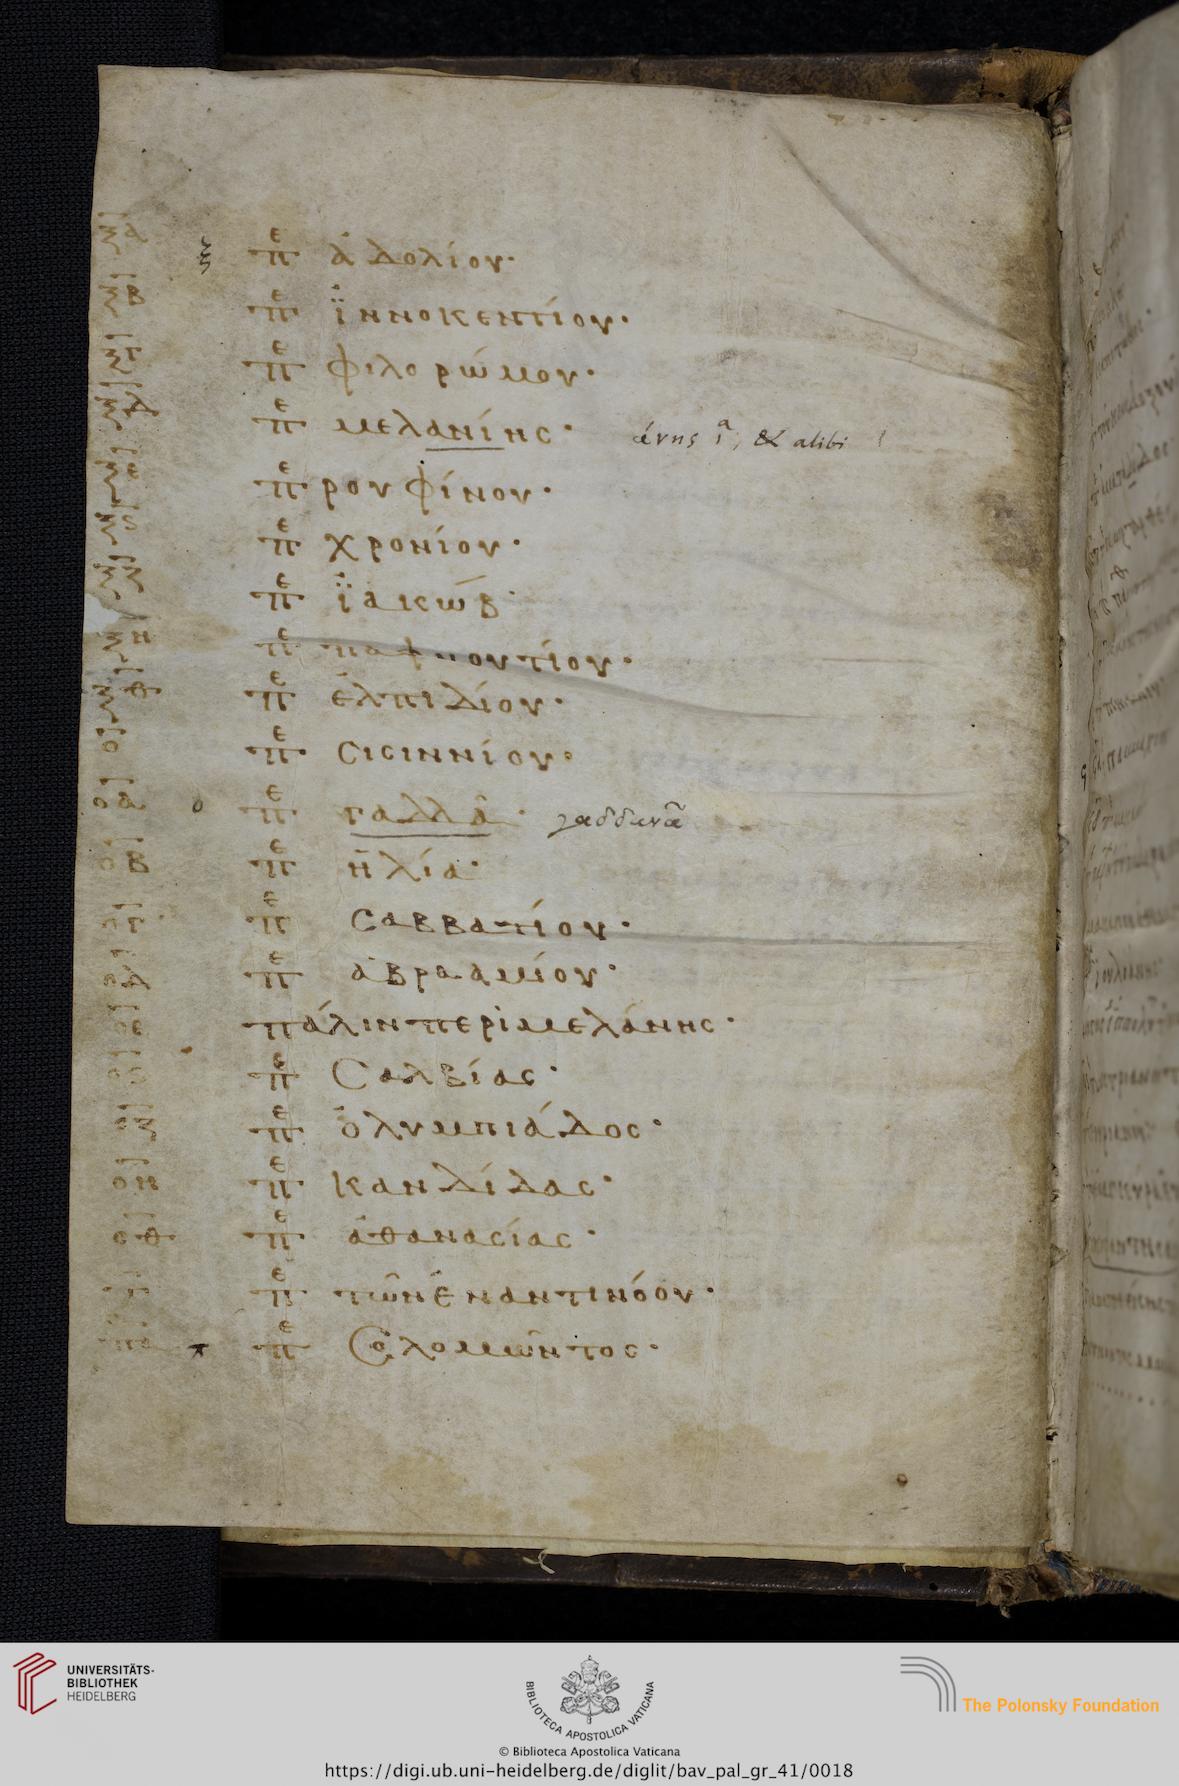 ξα ξ πε ἀδολίου·
ξβ πε ἰ̈ννοκεντίου·
ξγ πε φιλορώμου·
ξδ πε μελανίης· άνης ια, & alibi
ξε πε ρουφίνου·
ξϛ πε χρονίου·
ξζ πε ἰ̈ακώβ·
ξη πε παφνουτίου·
ξθ πε ἐλπιδίου·
ο πε σισιννίου·
οα ο πε γαδδᾶ· γαδδανᾶ
οβ πε ἠλία·
ογ πε σαββατίου·
οδ πε ἀβρααμίου·
οε πάλιν περὶ μελάνης·
οϛ πε Σαλβίας·
οζ πε ὀλυμπιάδος·
οη πε κανδίδας·
οθ πε ἀθανασίας·
π πε τῶν ἐν αντινόου·
πα π πε Σολομῶντος·
UNIVERSITÄTS-
BIBLIOTHEK
HEIDELBERG
BIBLIOTECA APOSTOLICA VATICANA
The Polonsky Foundation
© Biblioteca Apostolica Vaticana
https://digi.ub.uni-heidelberg.de/diglit/bav_pal_gr_41/0018